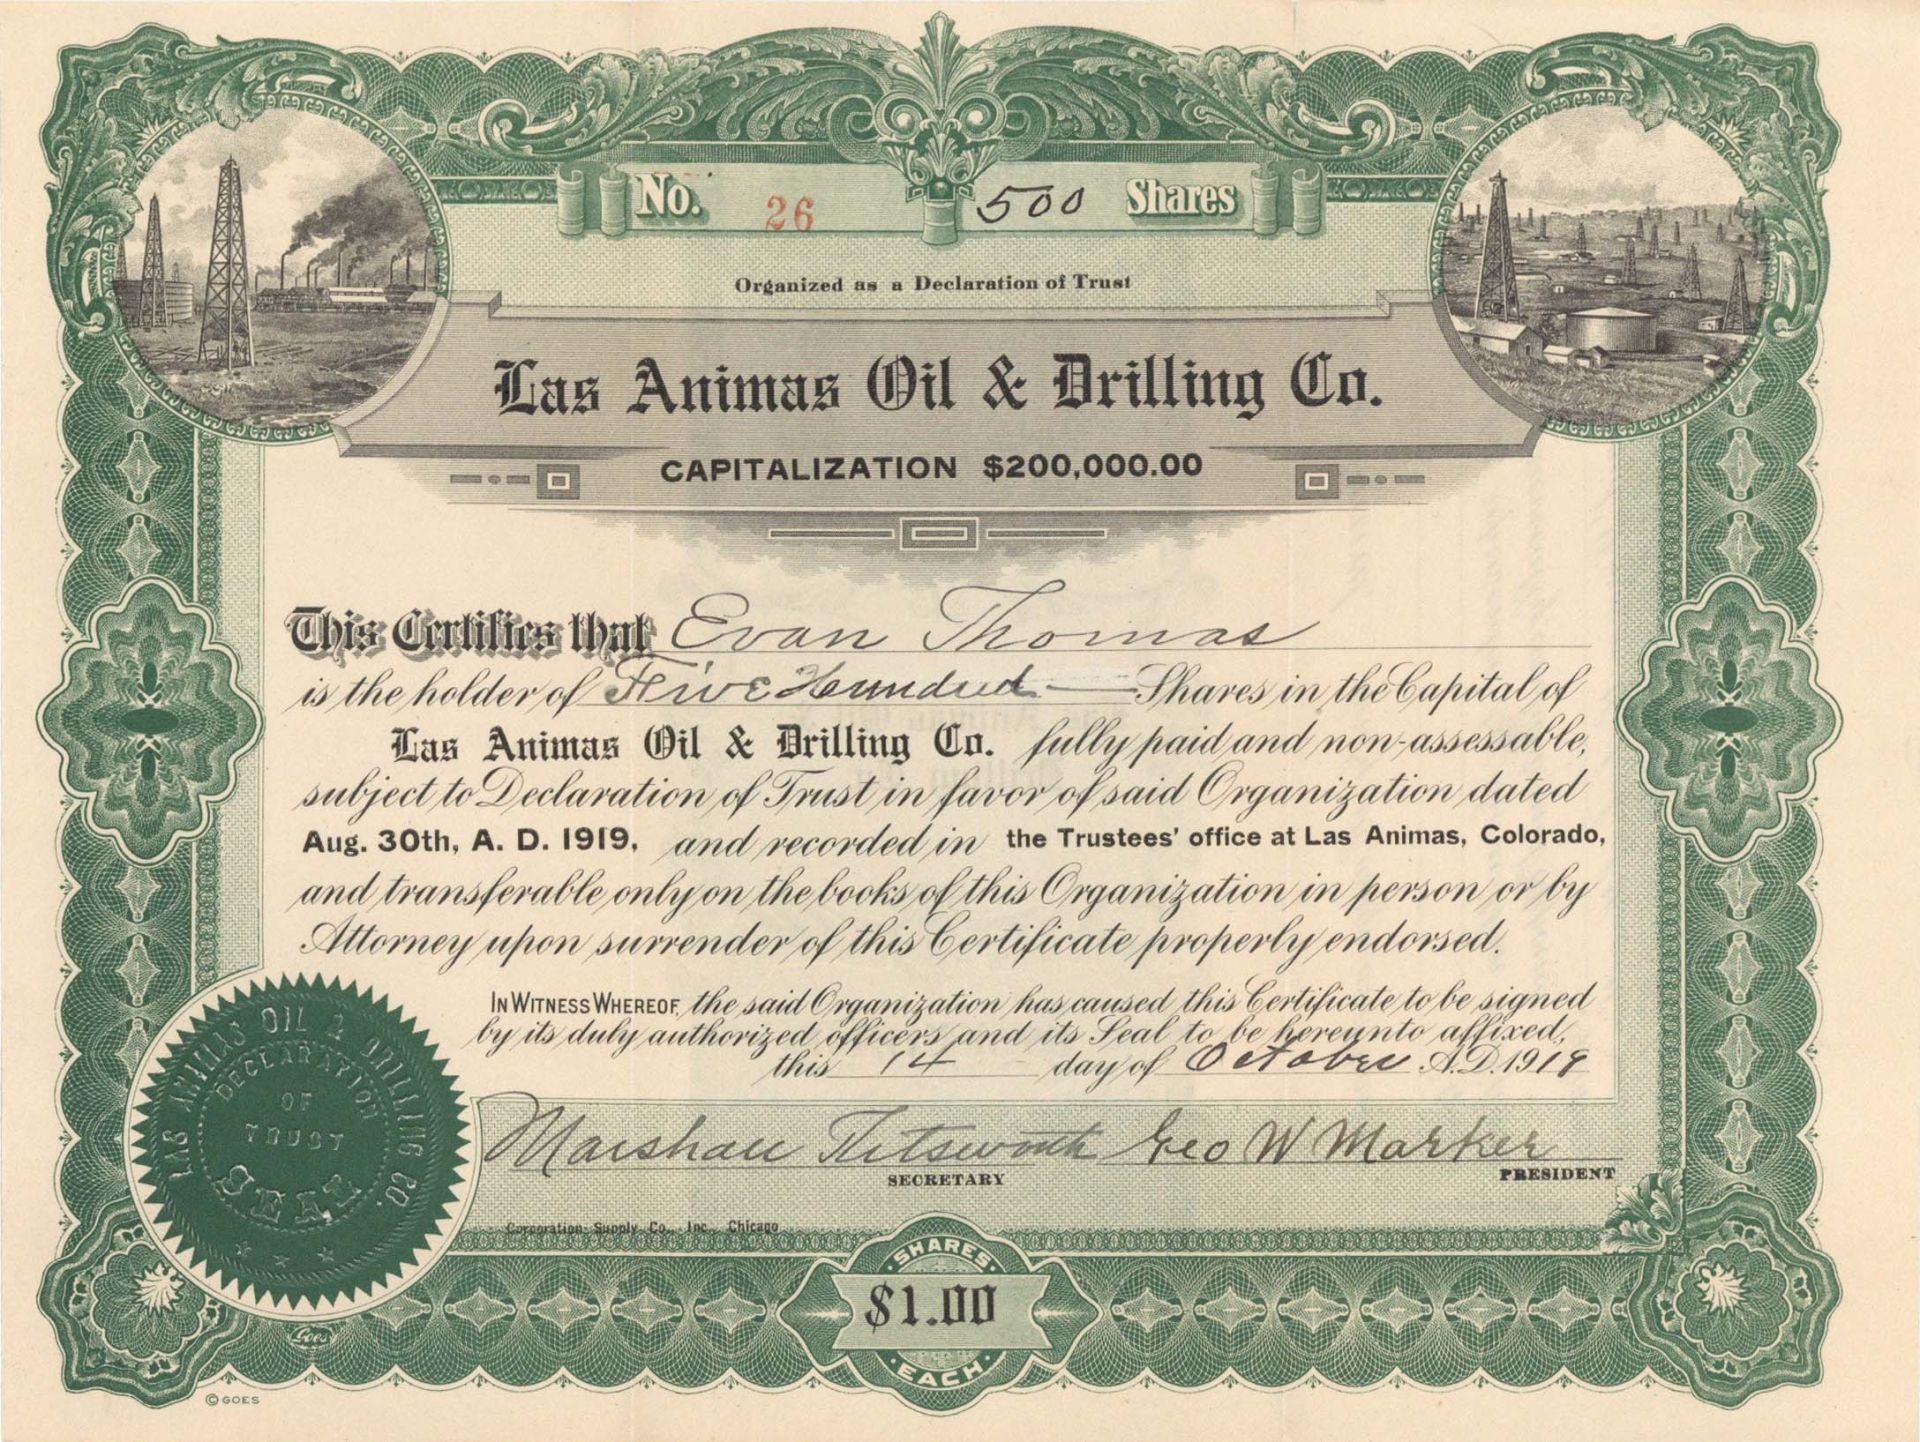 No. 26 500 Shares
Organized as a Declaration of Trust
Las Animas Oil & Drilling Co.
CAPITALIZATION $200,000.00
This Certifies that Evan Thomas
is the holder of Five Hundred Shares in the Capital of
Las Animas Oil & Drilling Co. fully paid and non-assessable,
subject to Declaration of Trust in favor of said Organization dated
Aug. 30th, A. D. 1919, and recorded in the Trustees' office at Las Animas, Colorado,
and transferable only on the books of this Organization in person or by
Attorney upon surrender of this Certificate properly endorsed.
IN WITNESS WHEREOF, the said Organization has caused this Certificate to be signed
by its duly authorized officers and its Seal to be hereunto affixed,
this 14 day of October A.D. 1919
LAS ANIMAS OIL & DRILLING CO.
DECLARATION
OF
TRUST
SEAL
Marshall Titsworth Geo W Marker
SECRETARY PRESIDENT
Corporation Supply Co., Inc., Chicago
SHARES
$1.00
EACH
Goes
© GOES